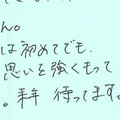 ん。
は初めてでも、
思いを強くもって
。来年 待ってます。